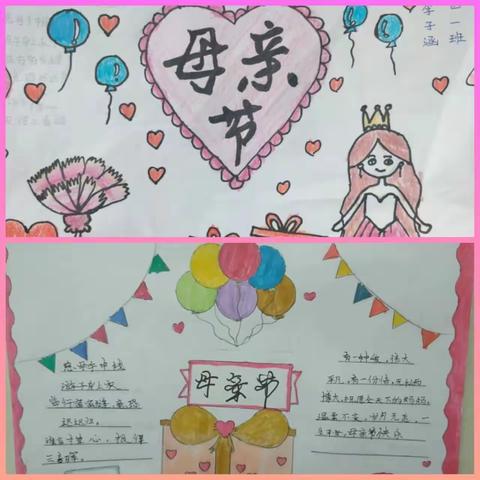 母亲
节
一班
子涵
母亲节
慈母手中线
游子身上衣
临行密密缝,意恐
迟迟归。
谁言寸草心,报得
三春晖。
有一种爱,伟大
有一份情,无私而
博大,祝愿全天下的妈妈,
温柔不变,岁月无恙,一
生平安,母亲节快乐